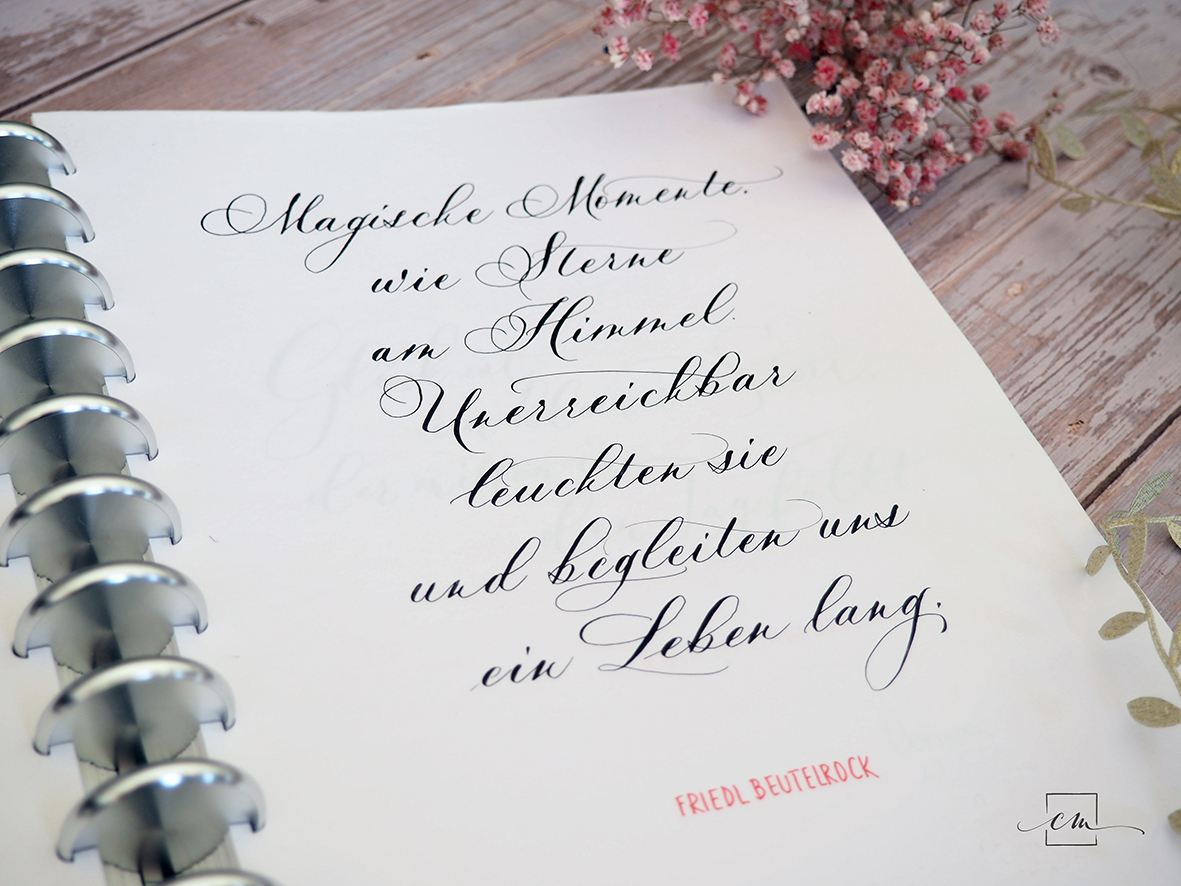 Magische Momente.
wie Sterne
am Himmel.
Unerreichbar
leuchten sie
und begleiten uns
ein Leben lang.
FRIEDL BEUTELROCK
cm